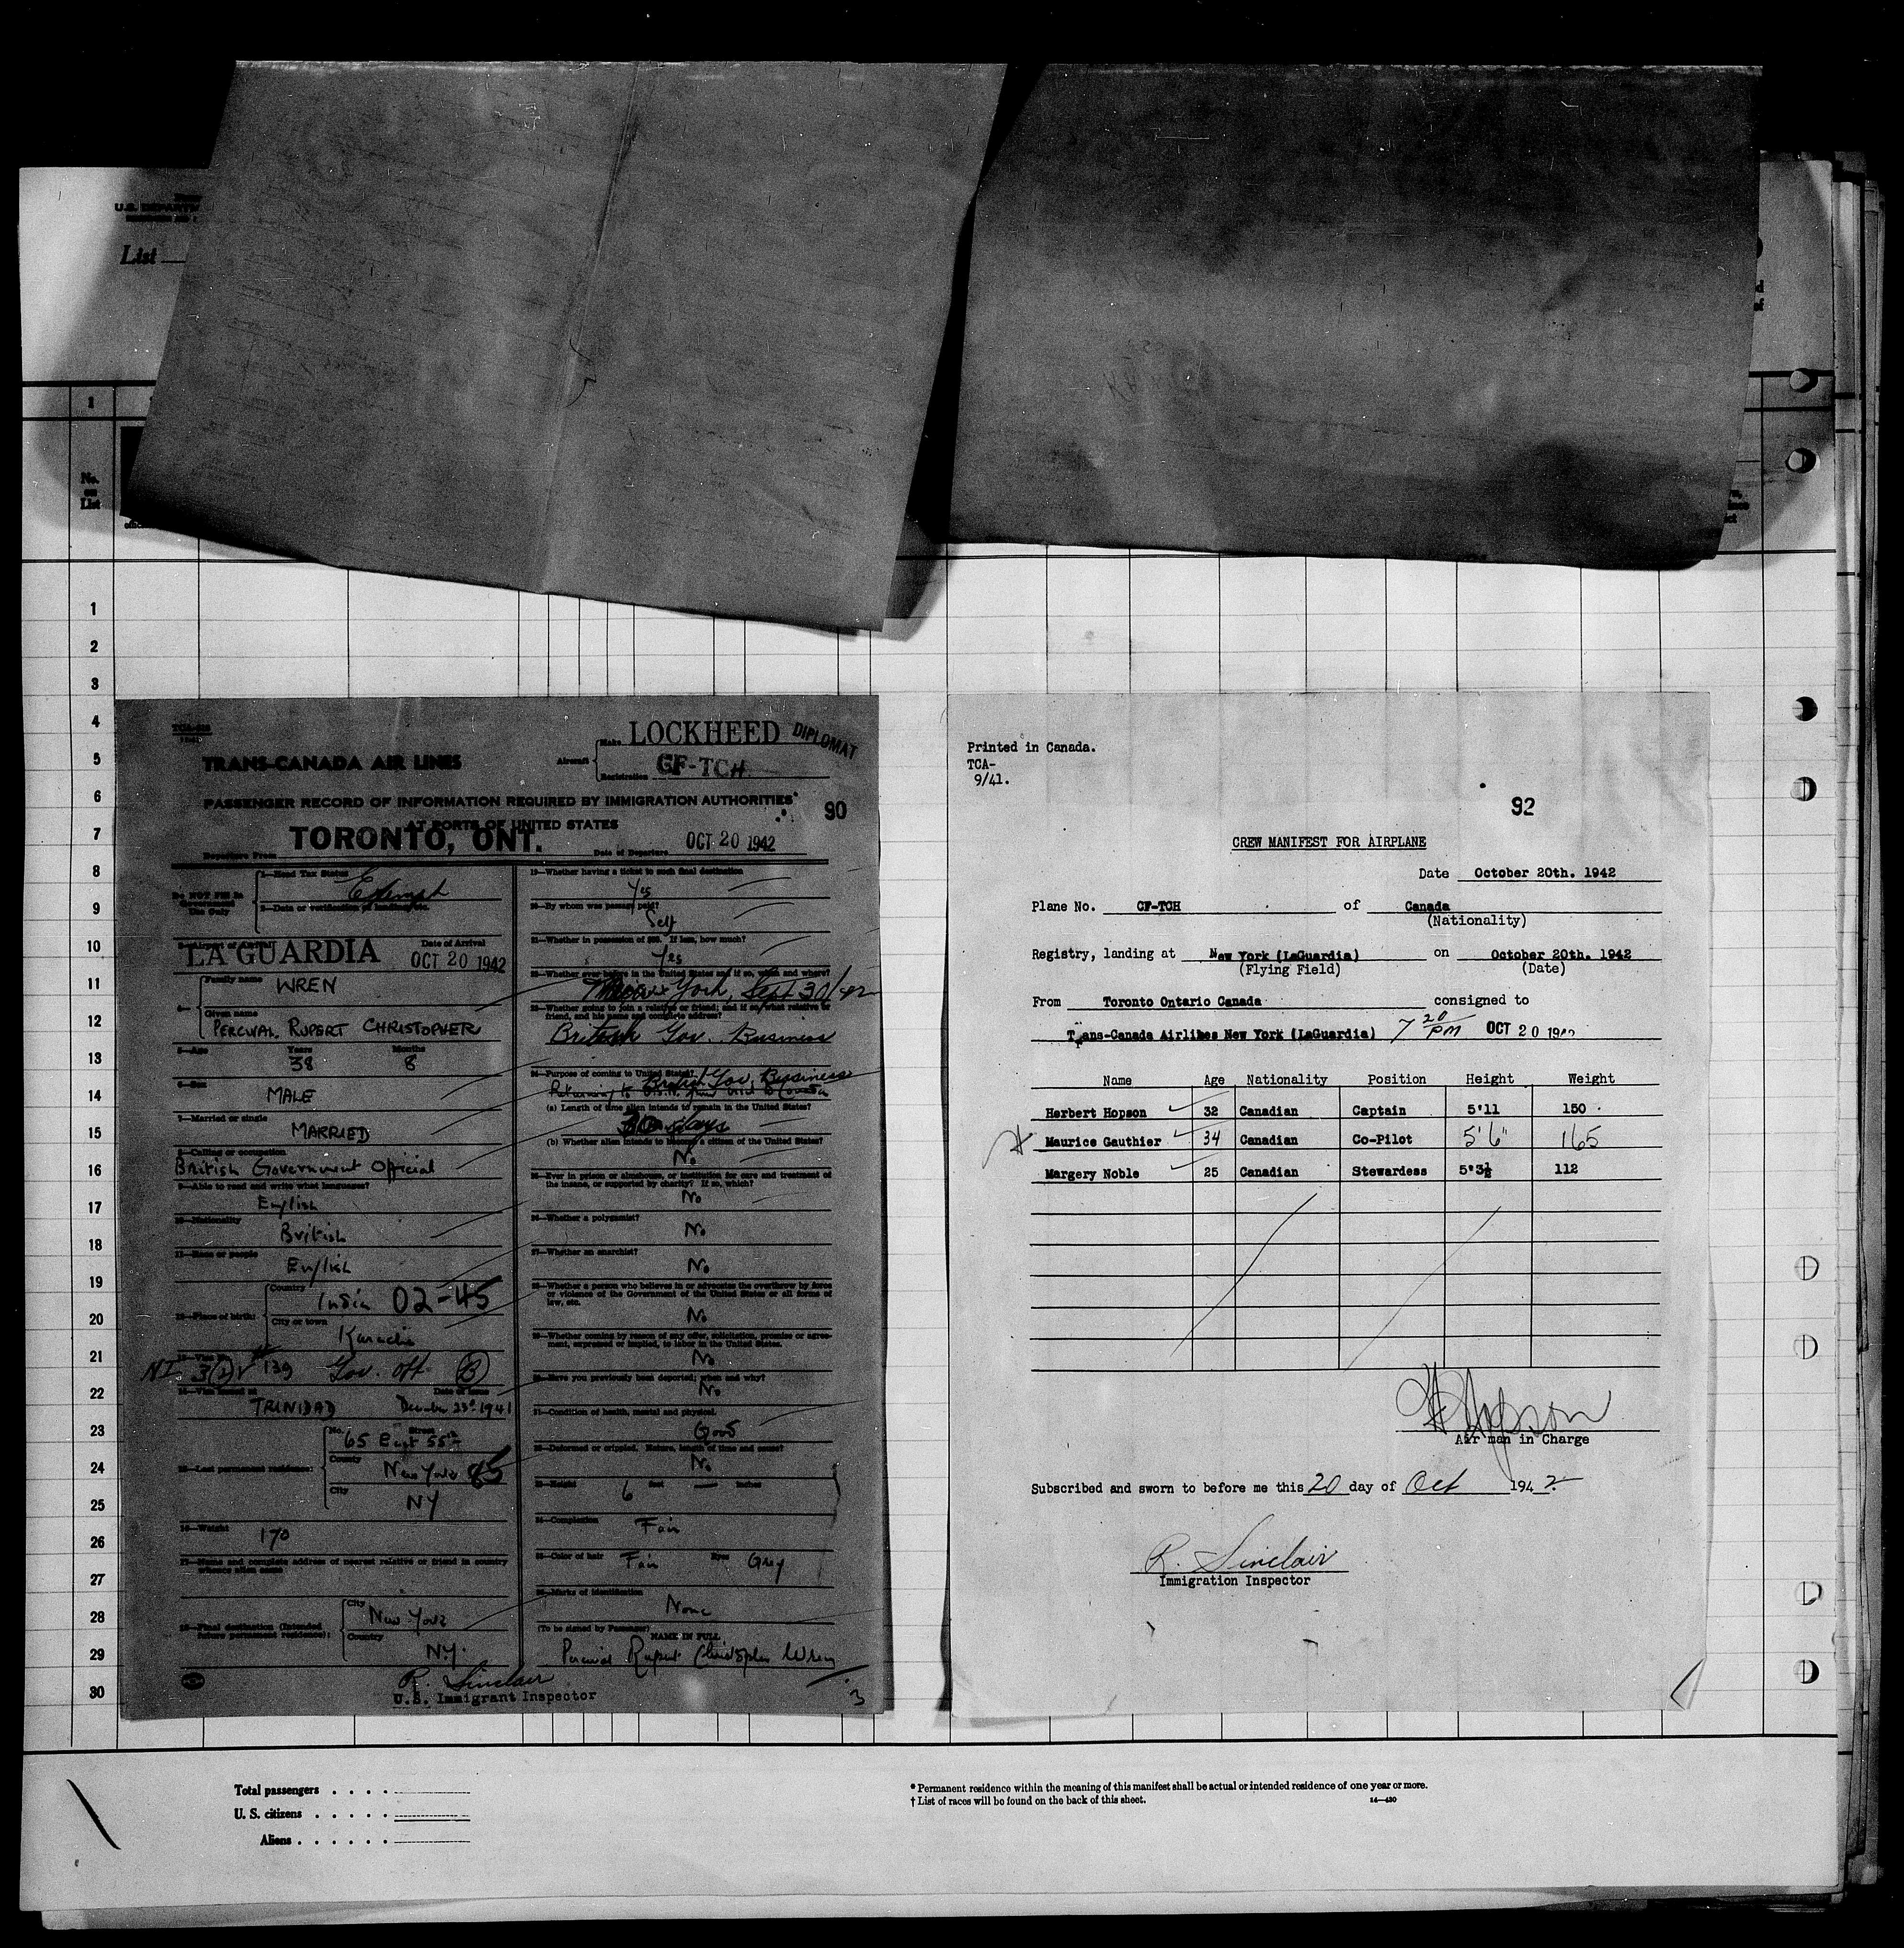 U.S. DEPARTM
List
1
No.
on
List
1
2
3
4
5
6
7
8
9
10
11
12
13
14
15
16
17
18
19
20
21
22
23
24
25
26
27
28
29
30
LOCKHEED DIPLOMAT
TRANS-CANADA AIR LINES
Aircraft
Make
Registration CF-TCH
PASSENGER RECORD OF INFORMATION REQUIRED BY IMMIGRATION AUTHORITIES
90
AT PORTS OF UNITED STATES
Departure From TORONTO, ONT. Date of Departure OCT 20 1942
1—Head Tax Status
Exempt
Do NOT Fill In
Government
Use Only
2—Data or verification of landing, etc.
3—Airport of Arrival LA GUARDIA
Date of Arrival OCT 20 1942
4— Family name WREN
Given name PERCIVAL RUPERT CHRISTOPHER
5—Age Years 38 Months 8
6—Sex MALE
7—Married or single MARRIED
8—Calling or occupation
British Government Official
9—Able to read and write what languages?
English
10—Nationality
British
11—Race or people
English
12—Place of birth: Country India 02-45
City or town Karachi
NI 3(2) V # 139 Gov. Off. (3)
14—Visa issued at TRINIDAD Date of Issue December 23rd 1941
15—Last permanent residence: No. Street 65 East 55th
County New York 85
City NY
16—Weight 170
17—Name and complete address of nearest relative or friend in country
whence alien came
18—Final destination (Intended
future permanent residence): City New York
Country N.Y.
R. Sinclair
U.S. Immigrant Inspector
19—Whether having a ticket to such final destination
Yes
20—By whom was passage paid?
Self
21—Whether in possession of $50. If less, how much?
Yes
22—Whether ever before in the United States and if so, when and where?
New York, Sept 30/42
23—Whether going to join a relative or friend; and if so, what relative or
friend, and his name and complete address?
British Gov. Business
24—Purpose of coming to United States?
British Gov. Business
Returning to U.S.A. from visit to Canada
(a) Length of time alien intends to remain in the United States?
30 days
(b) Whether alien intends to become a citizen of the United States?
No
25—Ever in prison or almshouse, or institution for care and treatment of
the insane, or supported by charity? If so, which?
No
26—Whether a polygamist?
No
27—Whether an anarchist?
No
28—Whether a person who believes in or advocates the overthrow by force
or violence of the Government of the United States or all forms of
law, etc.
No
29—Whether coming by reason of any offer, solicitation, promise or agree-
ment, expressed or implied, to labor in the United States.
No
30—Have you previously been deported; when and why?
No
31—Condition of health, mental and physical.
Good
32—Deformed or crippled. Nature, length of time and cause?
No
33—Height 6 feet — inches
34—Complexion Fair
35—Color of hair Fair Eyes Grey
36—Marks of identification
None
(To be signed by Passenger)
NAME IN FULL
Percival Rupert Christopher Wren
3
Printed in Canada.
TCA-
9/41.
92
CREW MANIFEST FOR AIRPLANE
Date October 20th. 1942
Plane No. CF-TCH of Canada
(Nationality)
Registry, landing at New York (LaGuardia) on October 20th. 1942
(Flying Field) (Date)
From Toronto Ontario Canada consigned to
Trans-Canada Airlines New York (LaGuardia) 7 20 PM OCT 20 1942
Name Age Nationality Position Height Weight
Herbert Hopson 32 Canadian Captain 5'11 150
Maurice Gauthier 34 Canadian Co-Pilot 5'6" 165
Margery Noble 25 Canadian Stewardess 5'3½ 112
H Hopson
Air man in Charge
Subscribed and sworn to before me this 20 day of Oct 1942
R. Sinclair
Immigration Inspector
Total passengers
U. S. citizens
Aliens
* Permanent residence within the meaning of this manifest shall be actual or intended residence of one year or more.
† List of races will be found on the back of this sheet.
14—430